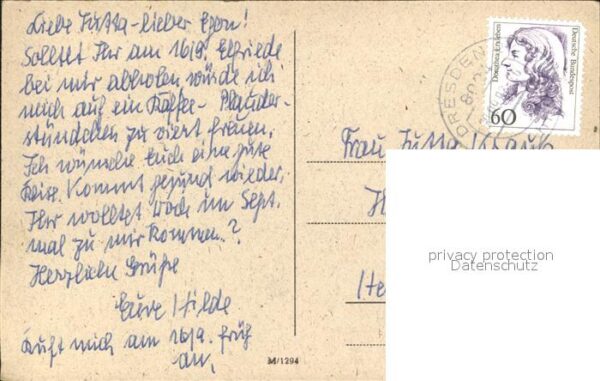 Liebe Jutta - lieber Egon!
Solltet Ihr am 16/9. Elfriede
bei mir abholen würde ich
mich auf ein Kaffee-Plauder-
stündchen zu viert freuen.
Ich wünsche Euch eine gute
Reise. Kommt gesund wieder,
Ihr wolltet doch im Sept.
mal zu mir kommen.?
Herzliche Grüße
Eure Hilde
Ruft mich am 16/9. früh
an.
M/1294
DRESDEN
Dorothea Erxleben
Deutsche Bundespost
60
Frau Jutta
privacy protection
Datenschutz